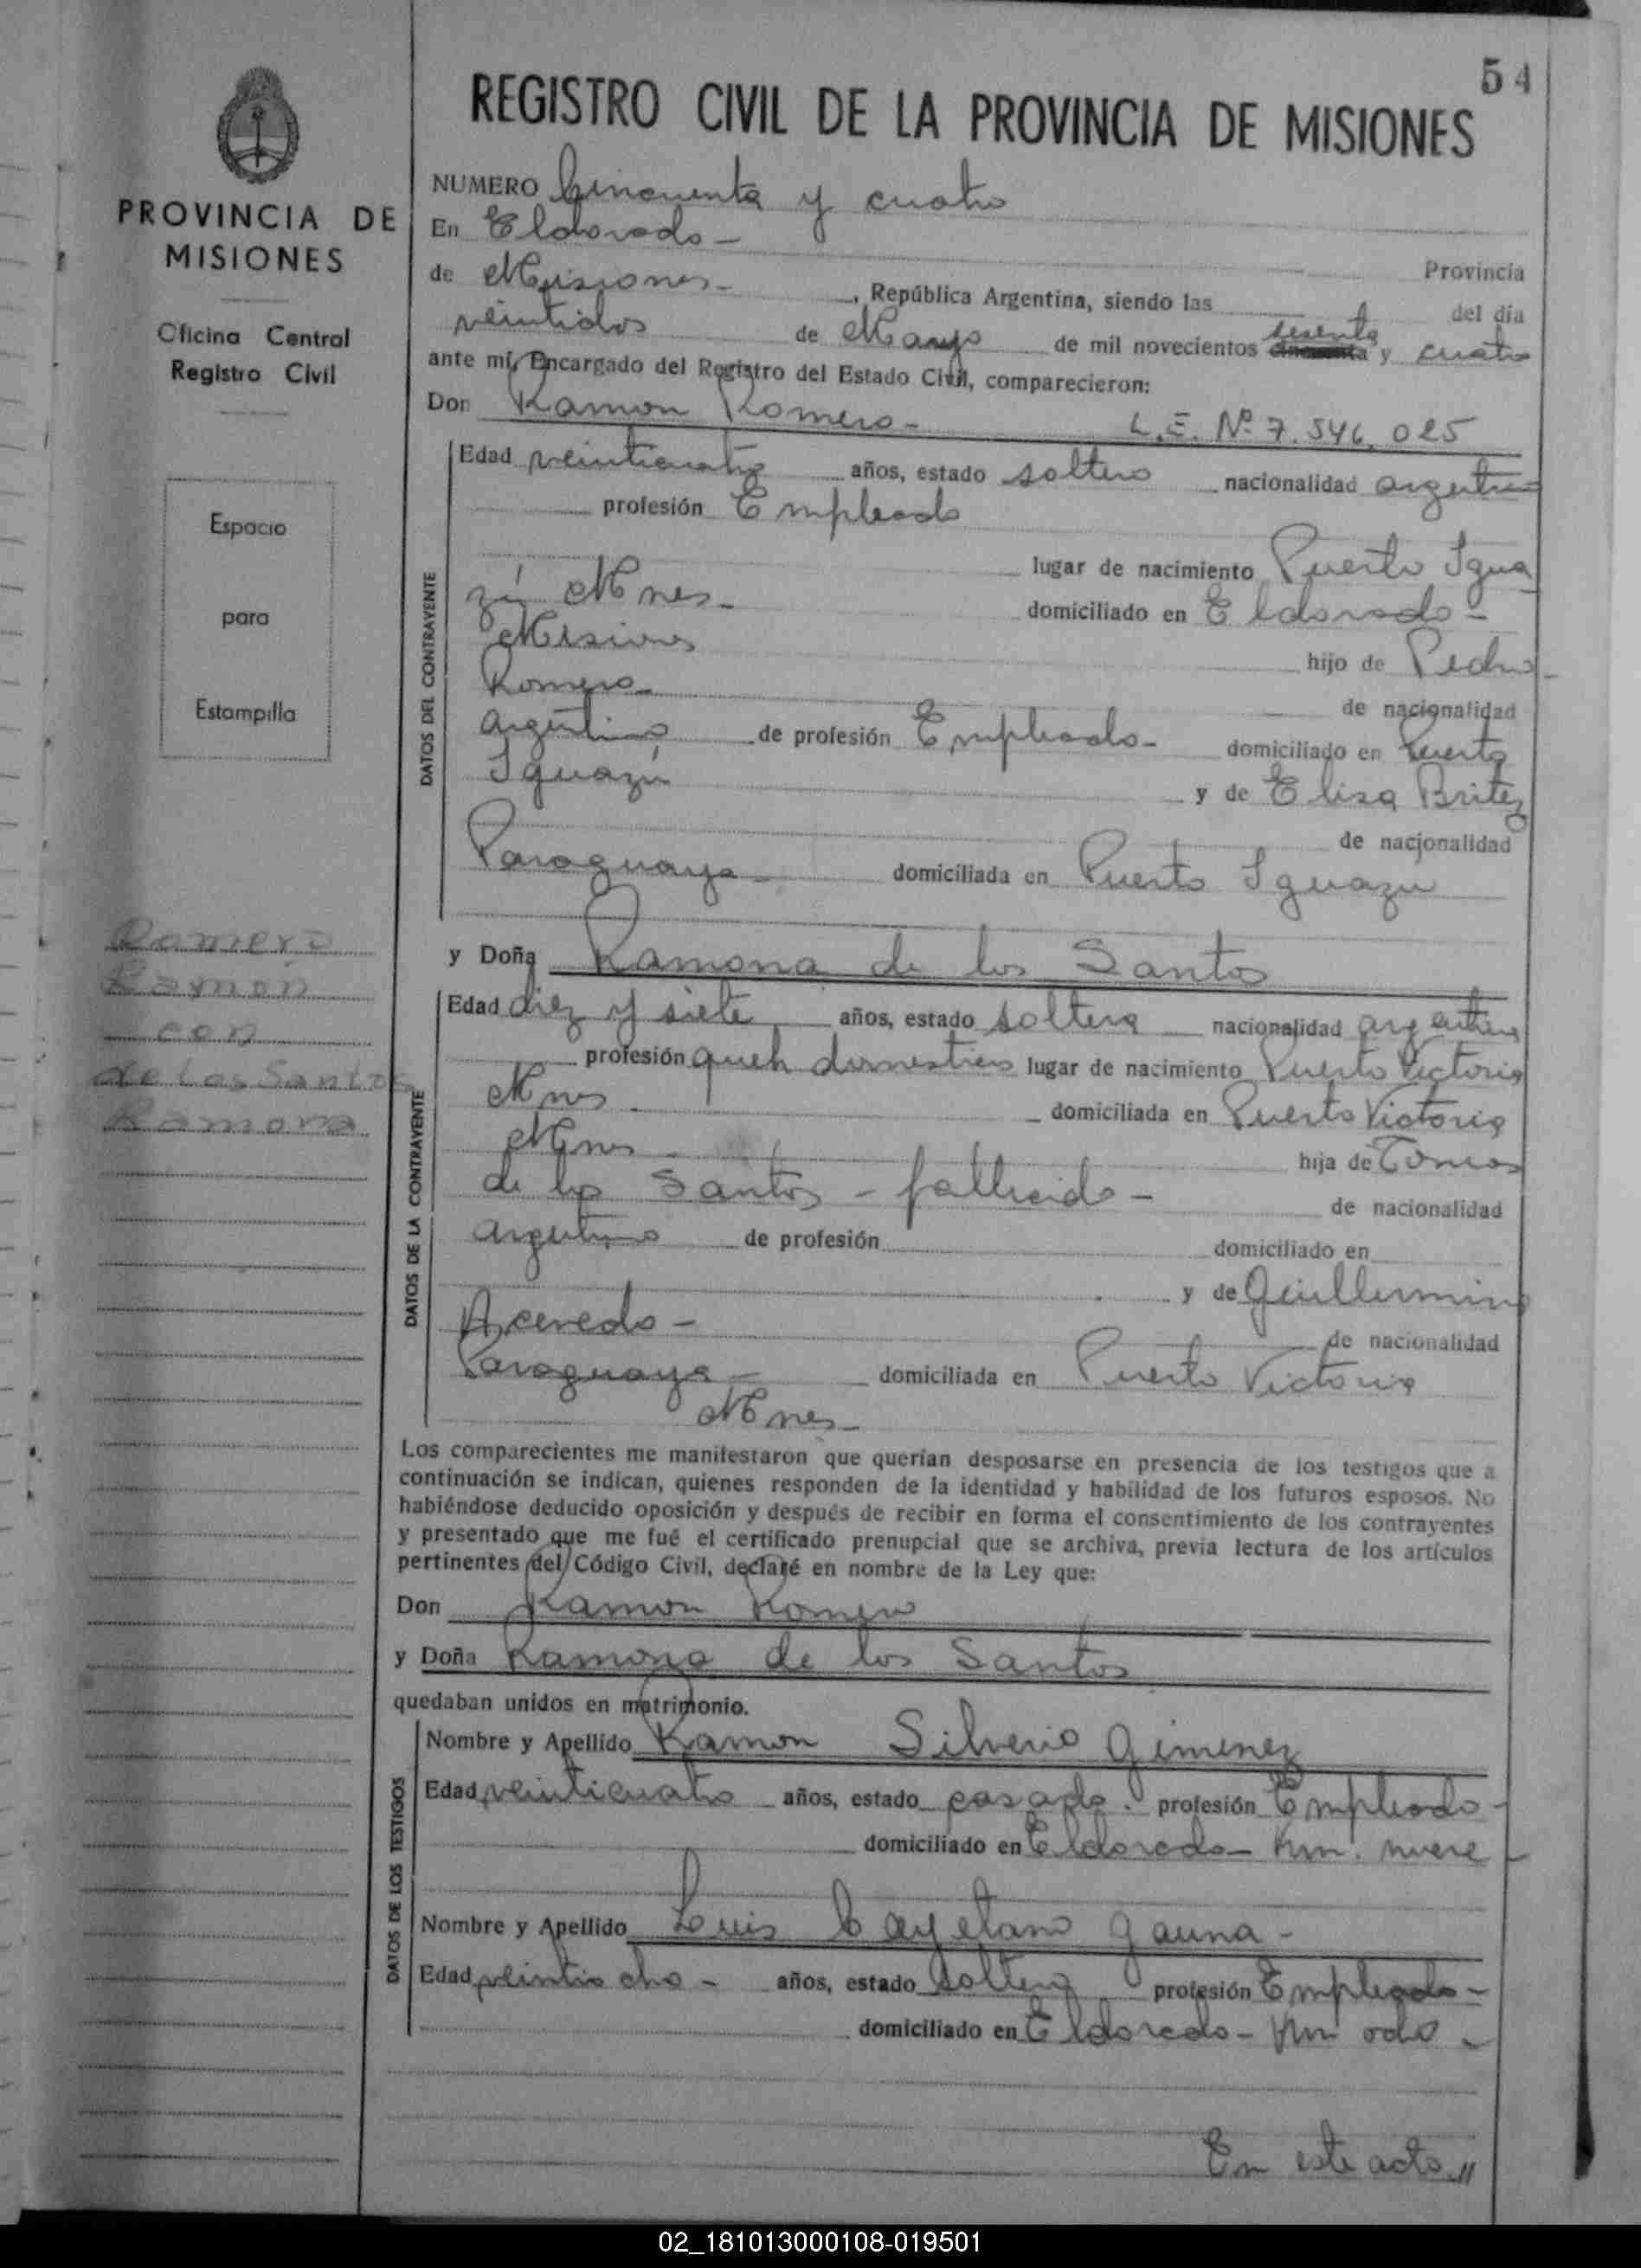 54
REGISTRO CIVIL DE LA PROVINCIA DE MISIONES
PROVINCIA DE
MISIONES
Oficina Central
Registro Civil
Espacio
para
Estampilla
Romero
Ramón
con
de Los Santos
Ramona
NUMERO Cincuenta y cuatro
En Eldorado - Provincia
de Misiones - , República Argentina, siendo las del día
veintidos de Mayo de mil novecientos sesenta cincuenta y cuatro
ante mí, Encargado del Registro del Estado Civil, comparecieron:
Don Ramon Romero - L.E. Nº 7.546.025
DATOS DEL CONTRAYENTE
Edad veinticuatro años, estado soltero nacionalidad argentino
profesión Empleado
lugar de nacimiento Puerto Igua
zú Mnes. domiciliado en Eldorado -
Misiones hijo de Pedro -
Romero - de nacionalidad
argentino de profesión Empleado - domiciliado en Puerto
Iguazú y de Elisa Britez
de nacionalidad
Paraguaya - domiciliada en Puerto Iguazu
y Doña Ramona de los Santos
DATOS DE LA CONTRAYENTE
Edad diez y siete años, estado soltera nacionalidad argentina
profesión queh domesticos lugar de nacimiento Puerto Victoria
Mnes domiciliada en Puerto Victoria
Mnes hija de Tomas
de los Santos - fallecido - de nacionalidad
argentino de profesión domiciliado en
y de Guillermina
Acevedo - de nacionalidad
Paraguaya - domiciliada en Puerto Victoria
Mnes -
Los comparecientes me manifestaron que querían desposarse en presencia de los testigos que a
continuación se indican, quienes responden de la identidad y habilidad de los futuros esposos. No
habiéndose deducido oposición y después de recibir en forma el consentimiento de los contrayentes
y presentado que me fué el certificado prenupcial que se archiva, previa lectura de los artículos
pertinentes del Código Civil, declaré en nombre de la Ley que:
Don Ramon Romero
y Doña Ramona de los Santos
quedaban unidos en matrimonio.
DATOS DE LOS TESTIGOS
Nombre y Apellido Ramon Silverio Gimenez
Edad veinticuatro años, estado casado. profesión Empleado -
domiciliado en Eldorado - Km. nueve -
Nombre y Apellido Luis Cayetano Gauna -
Edad veintiocho - años, estado soltero profesión Empleado -
domiciliado en Eldorado - Km ocho -
En este acto //
02_181013000108-019501